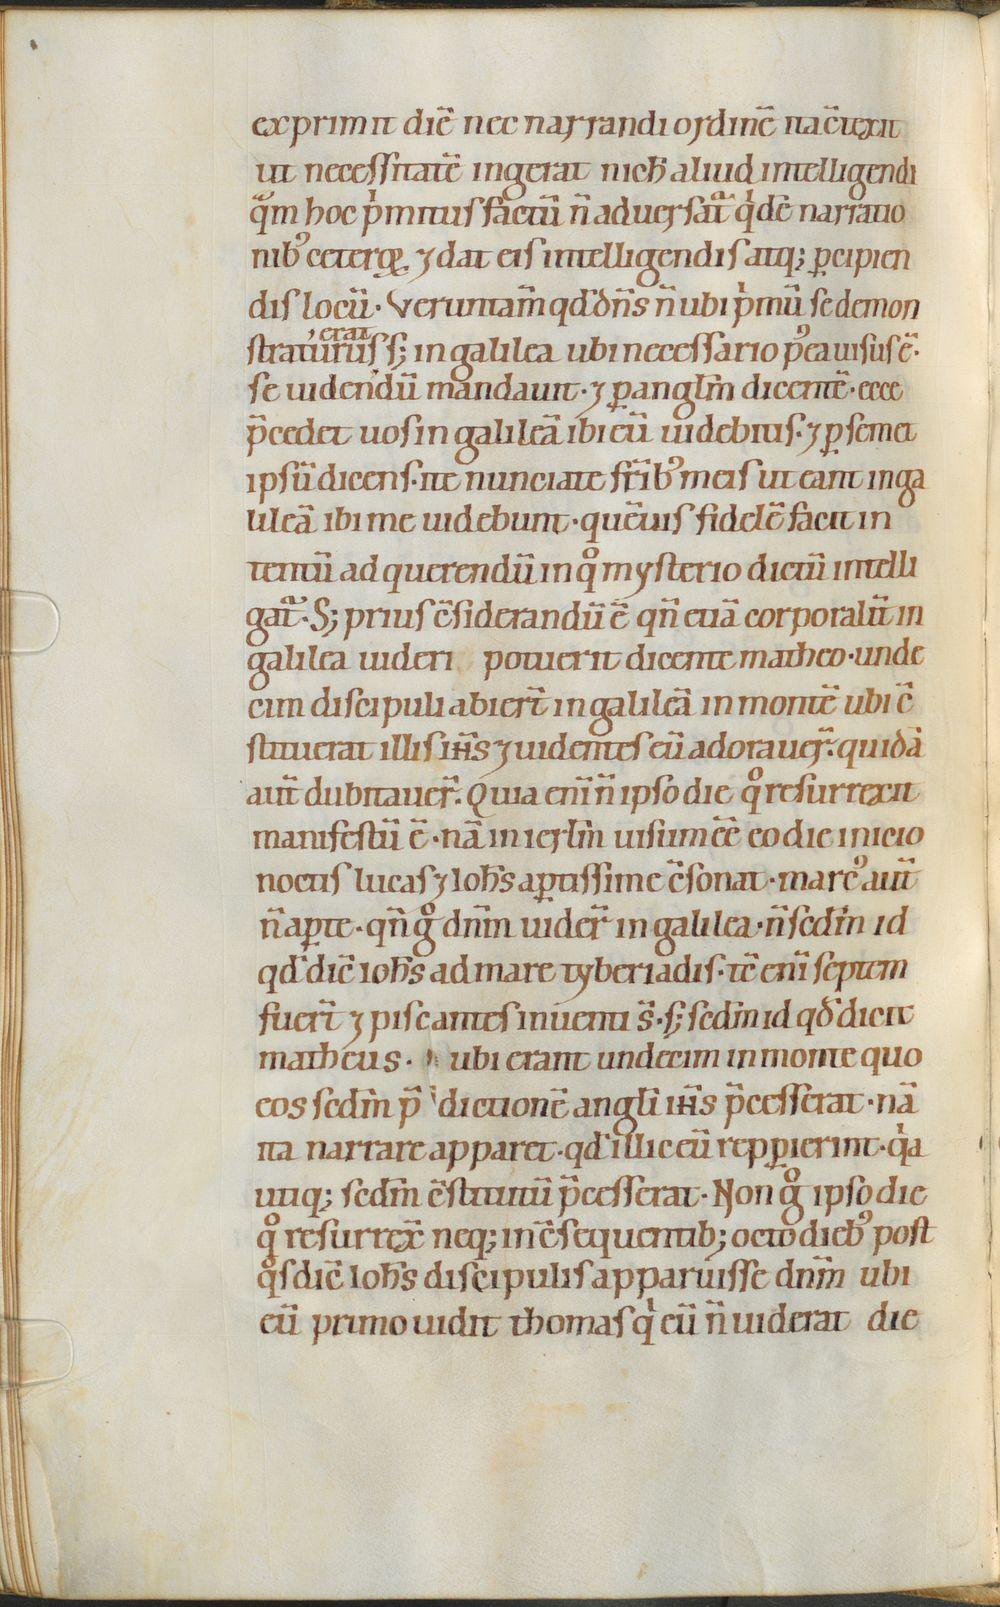 exprimit diē nec narrandi ordinē ita c̄texit
ut necessitatē ingerat nichꝉ aliud intelligendi
qͣm hoc pͥmitus factū n̄ aduersat᷑ qͥdē narratio
nibꝰ ceterꝝ ⁊ dat eis intelligendis atq; ꝑcipien
dis locū. Veruntam̄ qđ dn̄s n̄ ubi pͥmū se demon
straturus erat s; in galilea ubi necessario pꝰea uisus ē.
se uidendū mandauit. ⁊ ꝑ anglm̄ dicentē. ecce
p̄cedet uos in galileā ibi eū uidebitis. ⁊ ꝑ semet
ipsū dicens. ite nunciate fr̄ibꝰ meis ut eant in ga
lileā ibi me uidebunt. quēuis fidelē facit in
tentū ad querendū in qͦ mysterio dictū intelli
gat᷑. S; prius c̄siderandū ē qn̄ etiā corporalit̄ in
galilea uideri potuerit dicente matheo. unde
cim discipuli abiert̄ in galileā in montē ubi c̄
stituerat illis ih̄s ⁊ uidentes eū adorauer̄. quidā
aut̄ dubitauer̄. Quia eni n̄ ipso die qͦ resurrexit
manifestū ē. nā in ierlm̄ uisum ēē eo die inicio
noctis lucas ⁊ ioh̄s aptissime c̄sonat. marcꝰ aut̄
n̄ apte. qn̄ gͦ dnm̄ uider̄ in galilea. n̄ sedm̄ id
qđ diē ioh̄s ad mare tyberiadis. tē eni septem
fuert̄ ⁊ piscantes inuenti s̄. s; sedm̄ id qđ dicit
matheus. ubi erant undecim in monte quo
eos sedm̄ p̄ dictionē angli ih̄s p̄cesserat. nā
ita narrare apparet. qđ illic eū reppierint. qͥa
utiq; sedm̄ c̄stitutū p̄cesserat. Non gͦ ipso die
qͦ resurrex̄ neq; in c̄sequentib; octo diebꝰ post
qͦs dic̄ ioh̄s discipulis apparuisse dnm̄ ubi
eū primo uidit thomas qͥ eū n̄ uiderat die